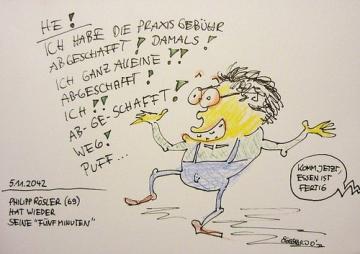 HE!
ICH HABE DIE PRAXISGEBÜHR
ABGESCHAFFT! DAMALS!
ICH GANZ ALLEINE!!
ABGESCHAFFT!
ICH!!
AB-GE-SCHAFFT!
WEG!
PUFF...
KOMM JETZT,
ESSEN IST
FERTIG
5.11.2042
PHILIPP RÖSLER (69)
HAT WIEDER
SEINE "FÜNF MINUTEN"